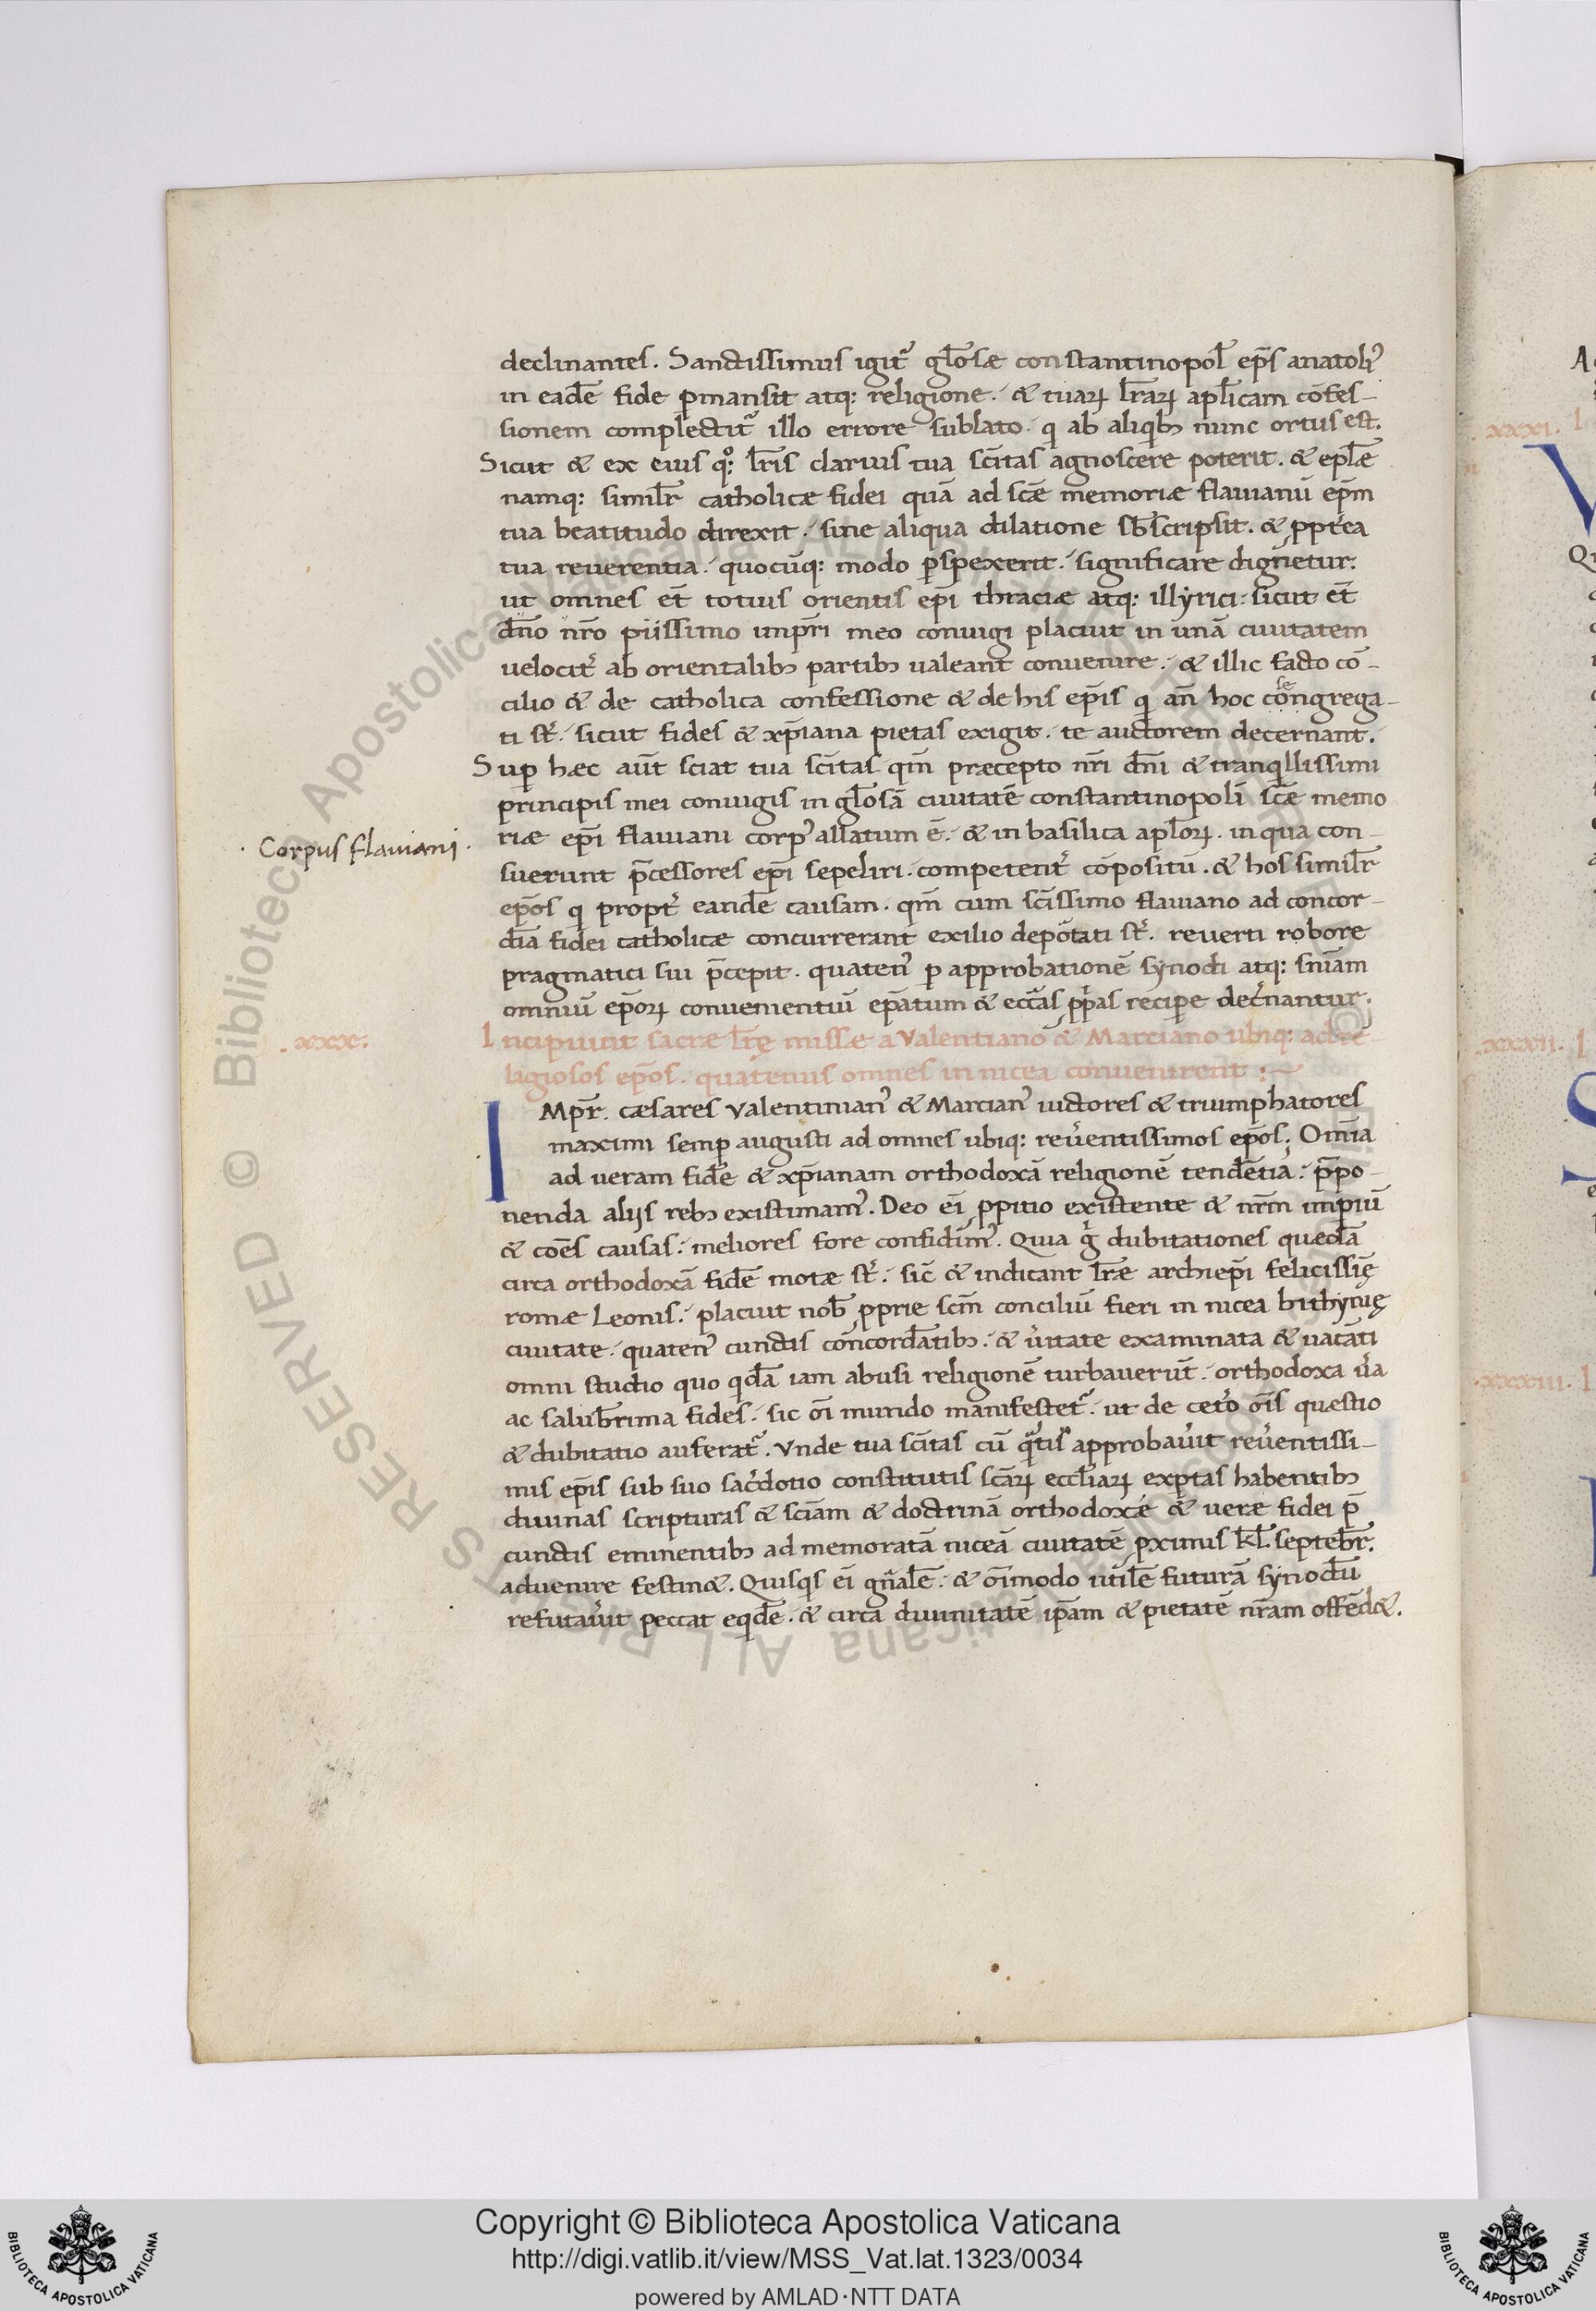 declinantes. Sanctissimus igit᷑ gl̄osæ constantinopol̄ ep̄s anatoli᾽
in eadē fide ꝑmansit atq: religione. & tuaꝝ l̄raꝝ apl̄icam cōfes-
sionem complectit᷑ illo errore sublato. q ab aliqb; nunc ortus est.
Sicut & ex eius qͦ: l̄ris clarius tua sc̄itas agnoscere poterit. & epl̄æ
namq: simil̄r catholicæ fidei quā ad sc̄æ memoriæ flauianū ep̄m
tua beatitudo direxit. sine aliqua dilatione sb̄scripsit. & ꝓpt᾽ea
tua reuerentia. quocūq: modo ꝑspexerit. significare dignetur.
ut omnes et̄ totius orientis ep̄i thraciæ atq: illyrici: sicut et̄
dn̄o nr̄o piissimo imp̄ri meo coniugi placuit in unā ciuitatem
uelocit᾽ ab orientalib; partib; ualeant conuenire. & illic facto cō-
cilio & de catholica confessione & de his ep̄is q an̄ hoc cōngrega-
se
ti st᾽. sicut fides & xp̄iana pietas exigit. te auctorem decernant.
Suꝑ hæc aūt sciat tua sc̄itas qm̄ præcepto nr̄i dn̄i & tranqllissimi
principis mei coniugis in gl̄osā ciuitatē constantinopolī sc̄æ memo
· Corpus flauiani ·
riæ ep̄i flauiani corp᾽ allatum ē. & in basilica apl̄oꝝ. in qua con-
suerunt p̄cessores ep̄i sepeliri. competent᾽ cōpositū. & hos simil̄r
ep̄os q propt᾽ eandē causam. qm̄ cum sc̄issimo flauiano ad concor-
diā fidei catholicæ concurrerant exilio depōtati st᾽. reuerti robore
pragmatici sui p̄cepit. quaten᾽ ꝑ approbationē synodi atq: sn̄iam
omniū ep̄oꝝ conuenientiū ep̄atum & ecc̄as ꝓp᾽as reciꝑe dec᾽nantur.
.xxx.
Incipiunt sacræ l̄rę missæ a Valentiano & Marciano ubiq: ad re
ligiosos ep̄os. quatenus omnes in nicea conuenirent :~
IMpr̄. cæsares valentinian᾽ & Marcian᾽ uictores & triumphatores
maximi semꝑ augusti ad omnes ubiq: reu᾽entissimos ep̄os. Omīa
ad ueram fidē & xp̄ianam orthodoxā religionē tendētia. p̄po-
nenda alijs reb; existimam᾽. Deo ei̅ ꝓpitio existente & nr̄m impiū
& coēs causas. meliores fore confidim᾽. Quia g̊ dubitationes quedā
circa orthodoxā fidē motæ st᾽. sic̄ & indicant l̄ræ archiep̄i felicissię̄
romæ Leonis. placuit nob̄ ꝓprie sc̄m conciliū fieri in nicea bithynię
ciuitate. quaten᾽ cunctis cōncordātib;. & u᾽itate examinata & uacāti
omni studio quo qdā iam abusi religionē turbauerūt. orthodoxa u᾽a
ac salub̄rima fides. sic oī mundo manifestet᷑. ut de cet᾽o oīs questio
& dubitatio auferat᷑. Vnde tua sc̄itas cū qᵃtis approbau᾽it reu᾽entissi-
mis ep̄is sub suo sac᾽dotio constitutis sc̄aꝝ eccl̄iaꝝ exꝑtas habentib;
diuinas scripturas & sciam & doctrinā orthodoxe & ueræ fidei p̄
cunctis eminentib; ad memoratā niceā ciuitatē ꝓximis kl̄. septeb̄r.
aduenire festin&. Quisqs ei̅ gn̄alē. & oīmodo utilē futurā synodū
refutau᾽it peccat eqdē. & circa diuinitatē ip̄am & pietatē nr̄am offēd&.
.xxxi.
.xxxii.
.xxxiii.
Copyright © Biblioteca Apostolica Vaticana
http://digi.vatlib.it/view/MSS_Vat.lat.1323/0034
powered by AMLAD·NTT DATA
BIBLIOTECA APOSTOLICA VATICANA
BIBLIOTECA APOSTOLICA VATICANA